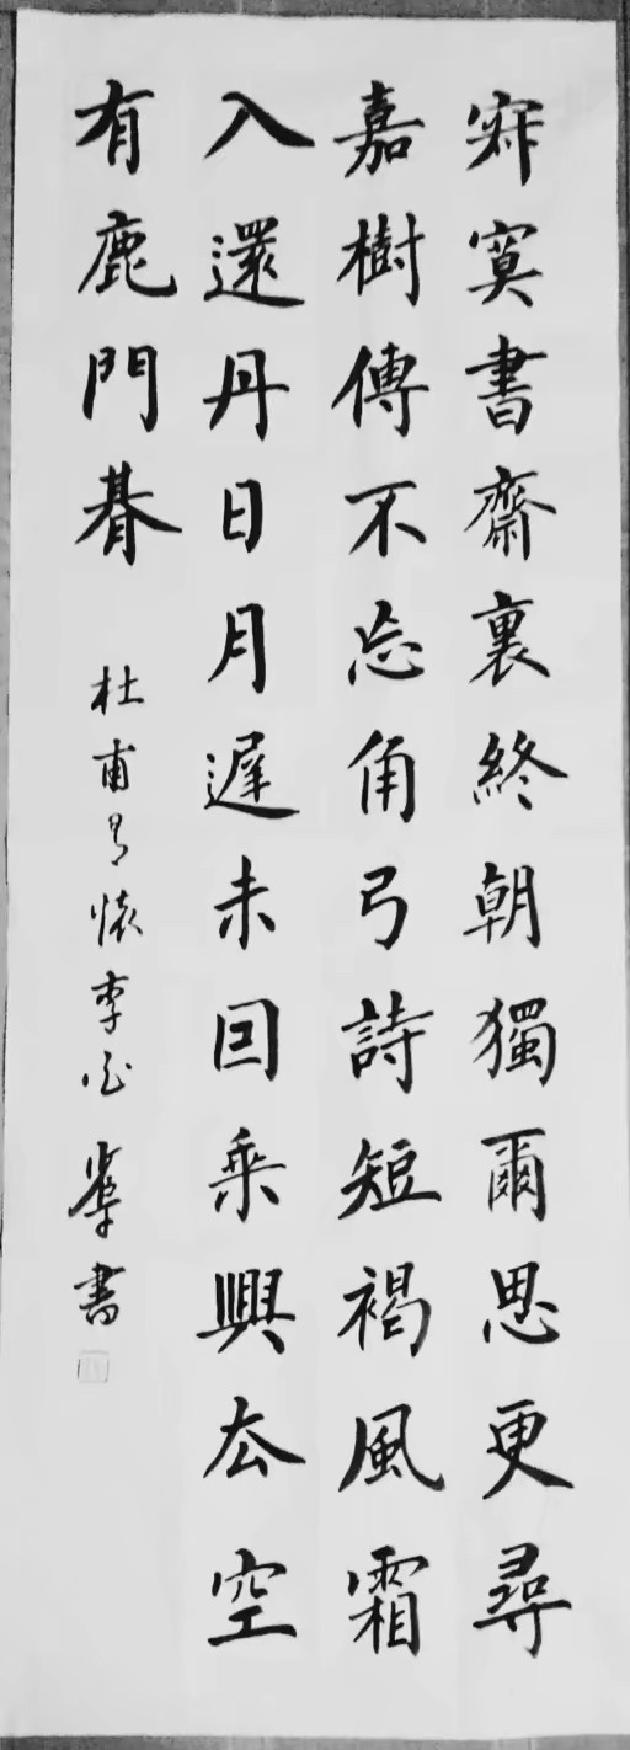 寂寞書齋裏終朝獨爾思更尋
嘉樹傳不忘角弓詩短褐風霜
入還丹日月遲未回乘興去空
有鹿門期
杜甫冬日懷李白 書